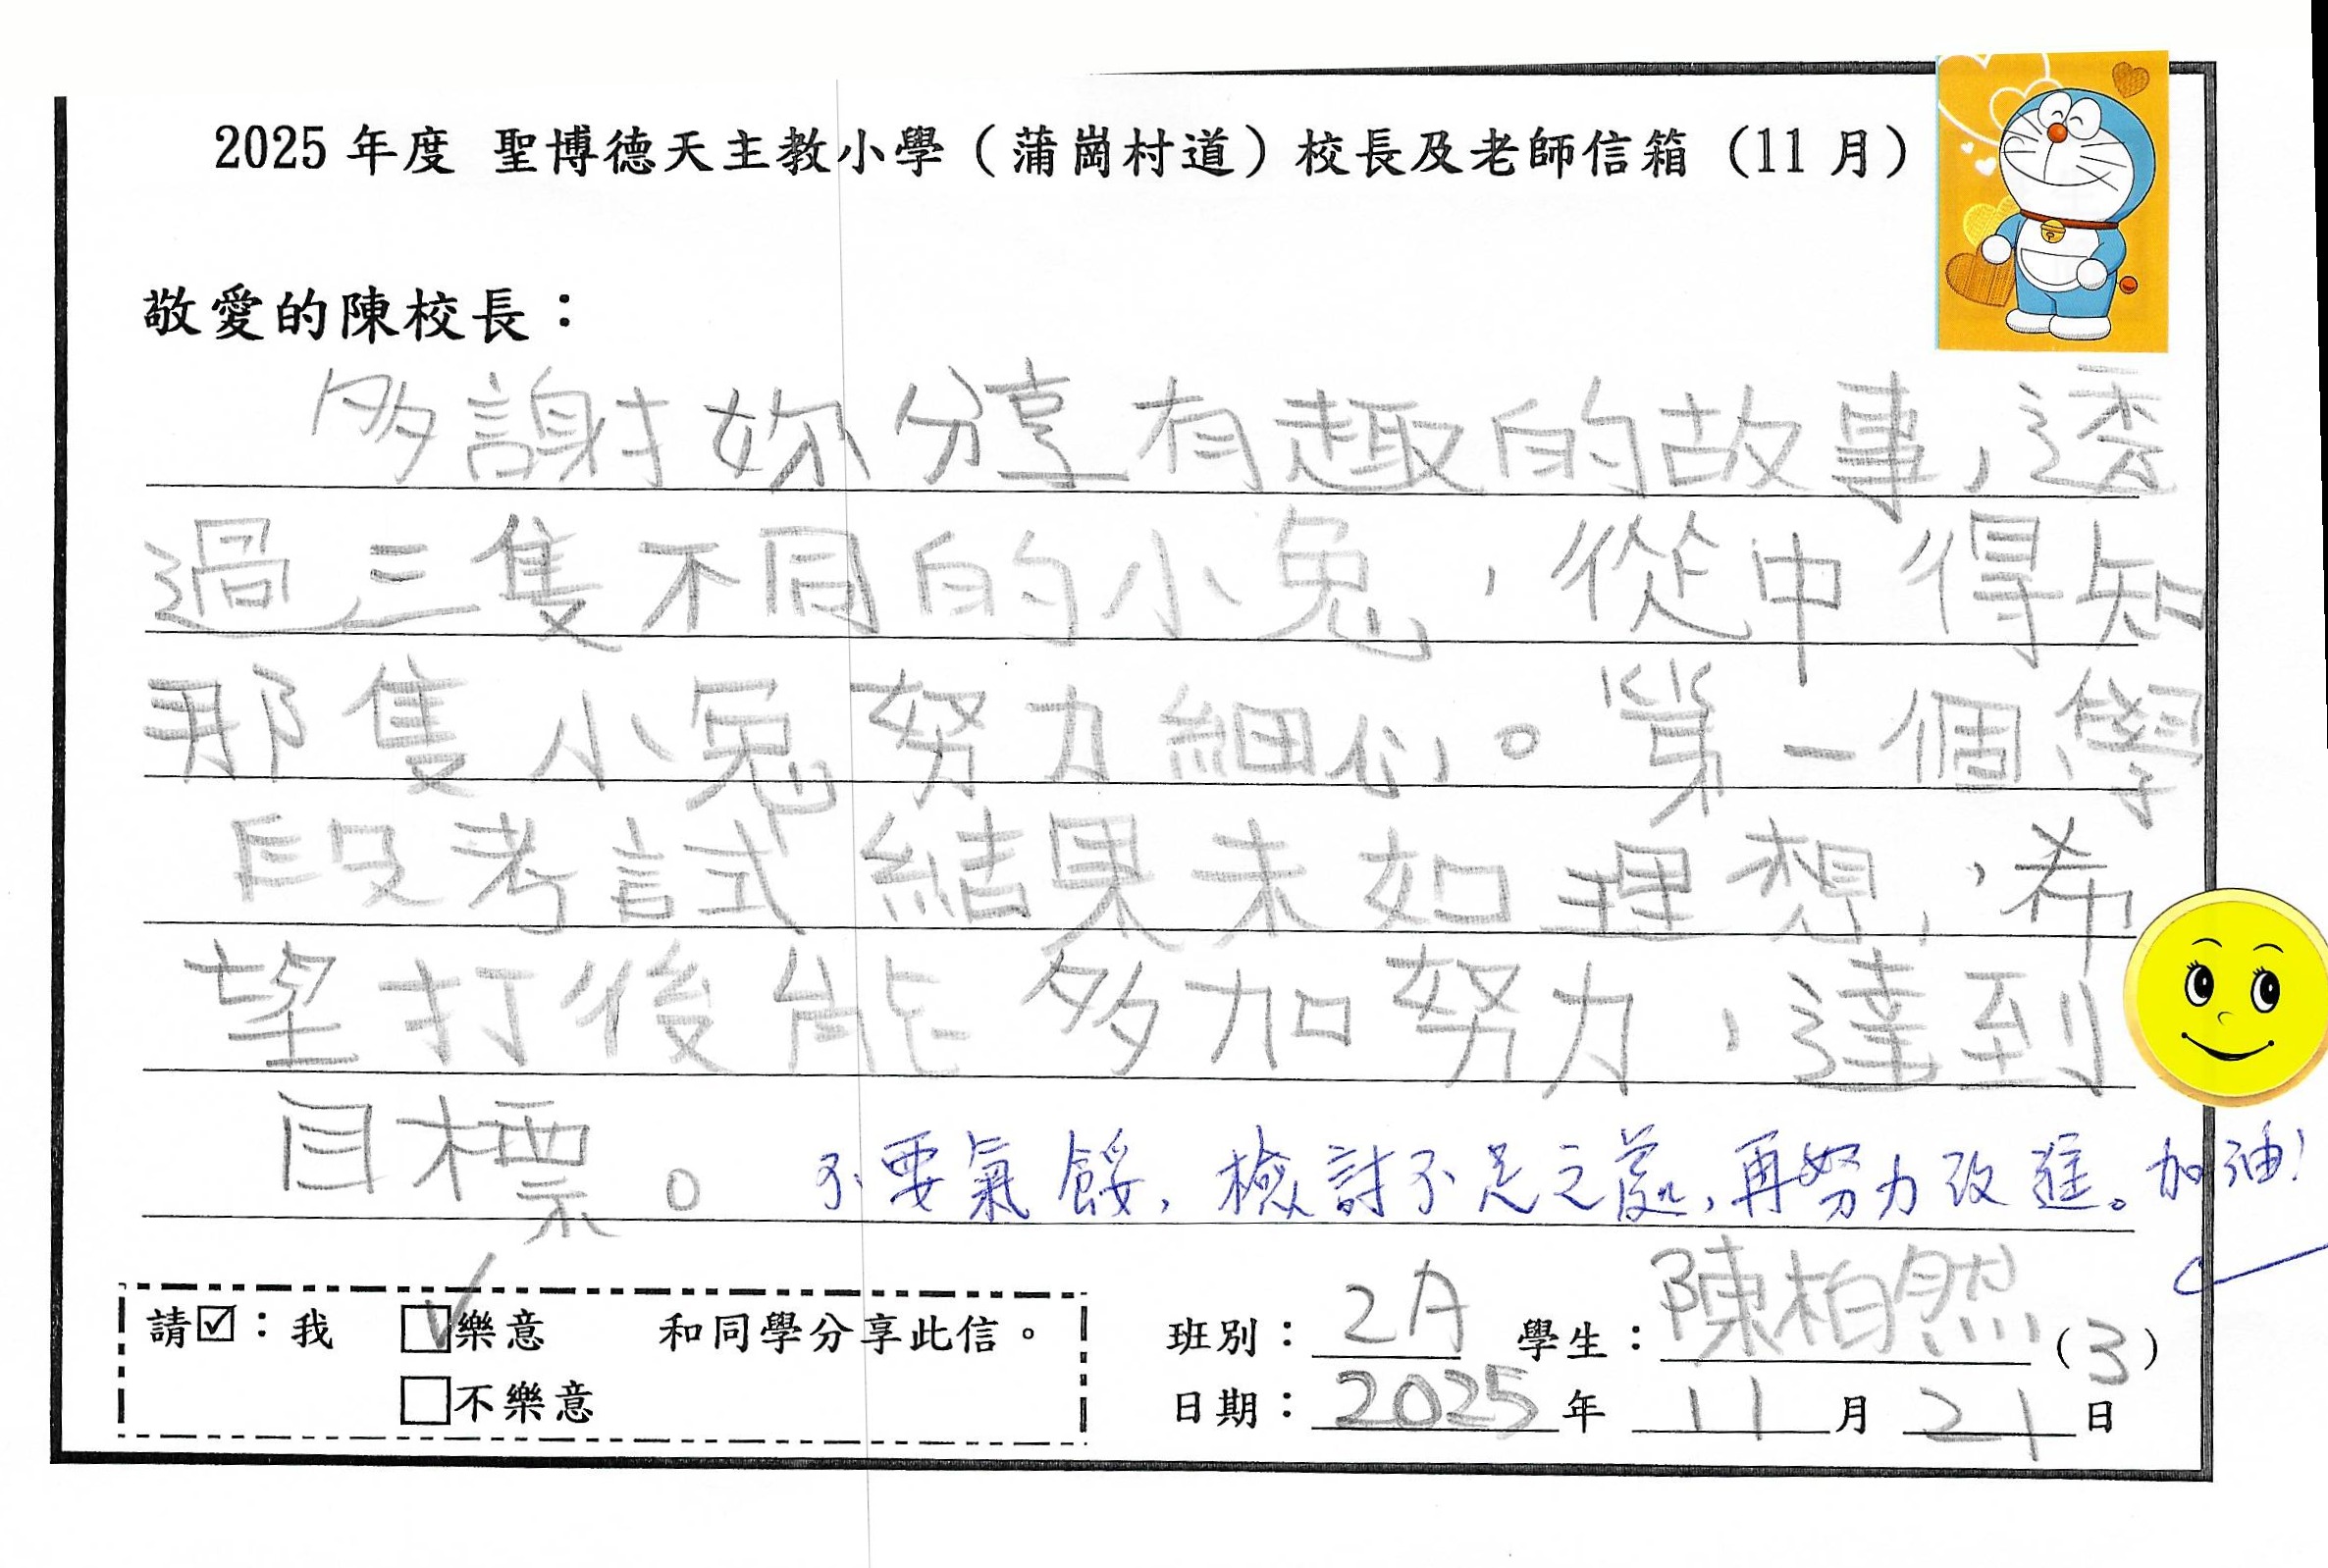 2025 年度 聖博德天主教小學（蒲崗村道）校長及老師信箱（11 月）
敬愛的陳校長：
多謝妳分享有趣的故事，透
過三隻不同的小兔，從中得知
那隻小兔努力細心。第一個學
段考試結果未如理想，希
望打後能多加努力，達到
目標。 不要氣餒，檢討不足之處，再努力改進。加油！
請☑：我 ☑樂意 和同學分享此信。
□不樂意
班別：2A 學生：陳柏然（3）
日期：2025年 11月 21日